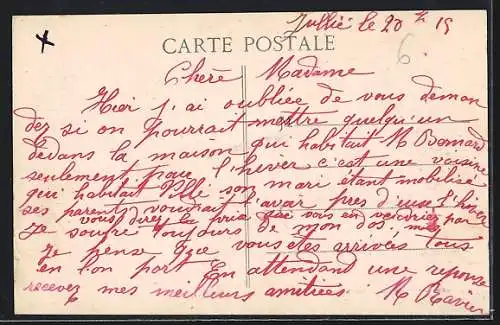 Jullié le 20 15
CARTE POSTALE
6
Chère Madame
Hier j'ai oubliée de vous deman
dez si on pourrait mettre quelqu'un
dedans la maison qui habitait M Bonnard
seulement pour l'hiver c'est une voisine
qui habitait Ville son mari étant mobilisé
ses parents voudrait l'avoir pres d'eux l'hiver
vous direz le prix que vous en
Je souffre toujours de mon dos, mes
je pense que vous etes arrivés tous
en bon port En attendand une reponse
recevez mes meilleurs amitiées M Ravier